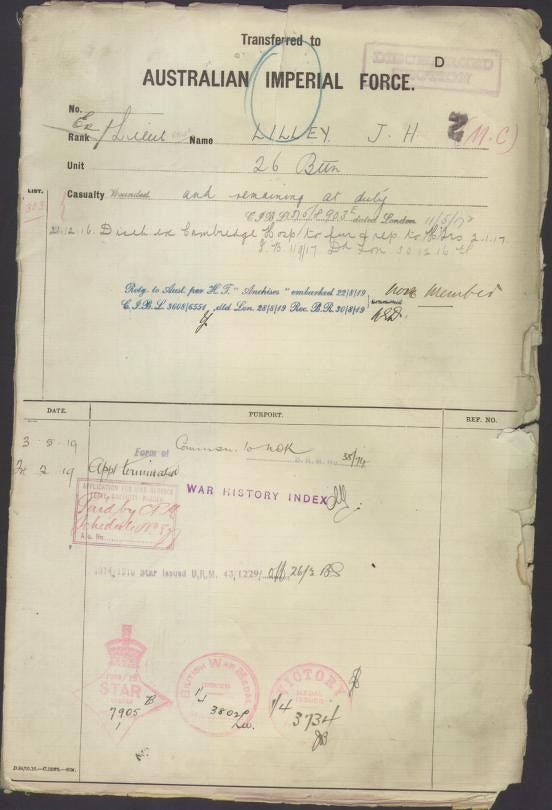 Transferred to
D
DISCHARGED
SECTION
AUSTRALIAN IMPERIAL FORCE.
No.
Rank Ex/Lieut Name LILLEY. J. H 2 (M.C)
Unit 26 Btn
LIST.
303
Casualty Wounded and remaining at duty
dated London
21.12.16. Disch ex Cambridge Hosp to fur & rep. to Hdqrs 2.1.17
Lon. 30.12.16
Retg. to Aust. per H.T. "Anchises" embarked 22/8/19
C.I.B.L. 3608/6551 dtd Lon. 28/8/19 Rec. B.R. 30/8/19
Member
DATE. PURPORT. REF. NO.
3 5 19 Form of Commn. to NOK B.R.M. No. 35/74
2 19 Appt terminated
APPLICATION FOR WAR SERVICE
Paid by
Schedule No
A/c No.
WAR HISTORY INDEX
1914/1915 Star Issued D.R.M. 43/1229/ off 26/2
1914/15
STAR
ISSUED
7905
BRITISH WAR MEDAL
VICTORY
MEDAL
ISSUED
1/4
3734